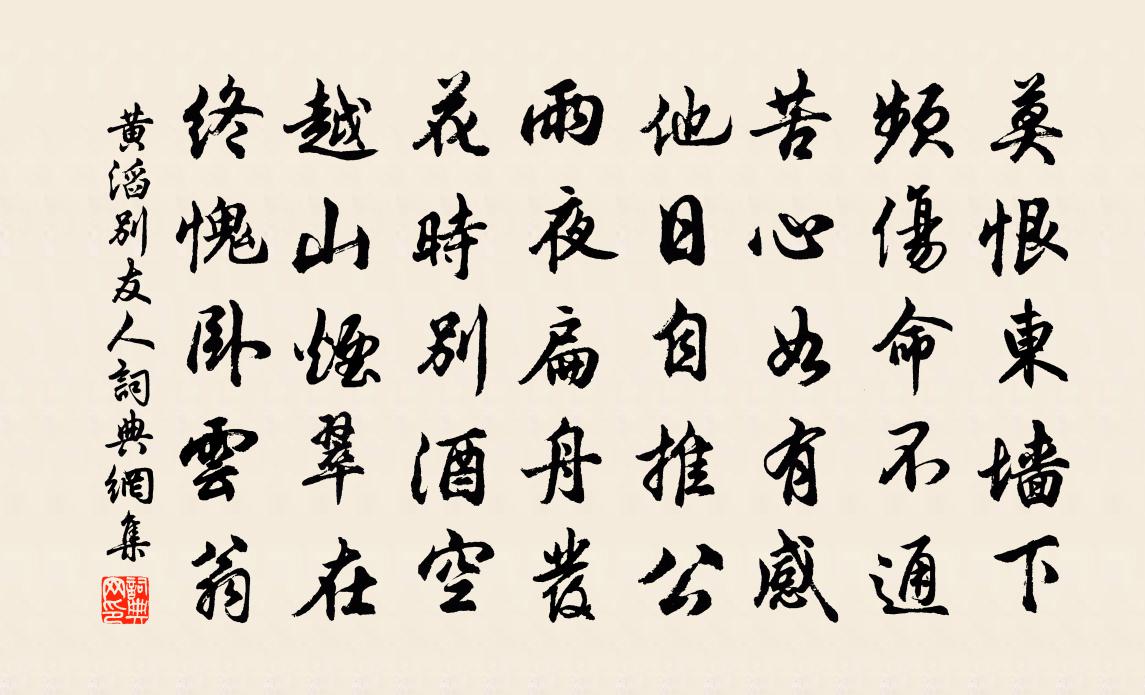 莫恨東墻下
頻傷命不通
苦心如有感
他日自推公
雨夜扁舟發
花時別酒空
越山煙翠在
終愧臥雲翁
黃滔別友人詞典網集
詞典網印